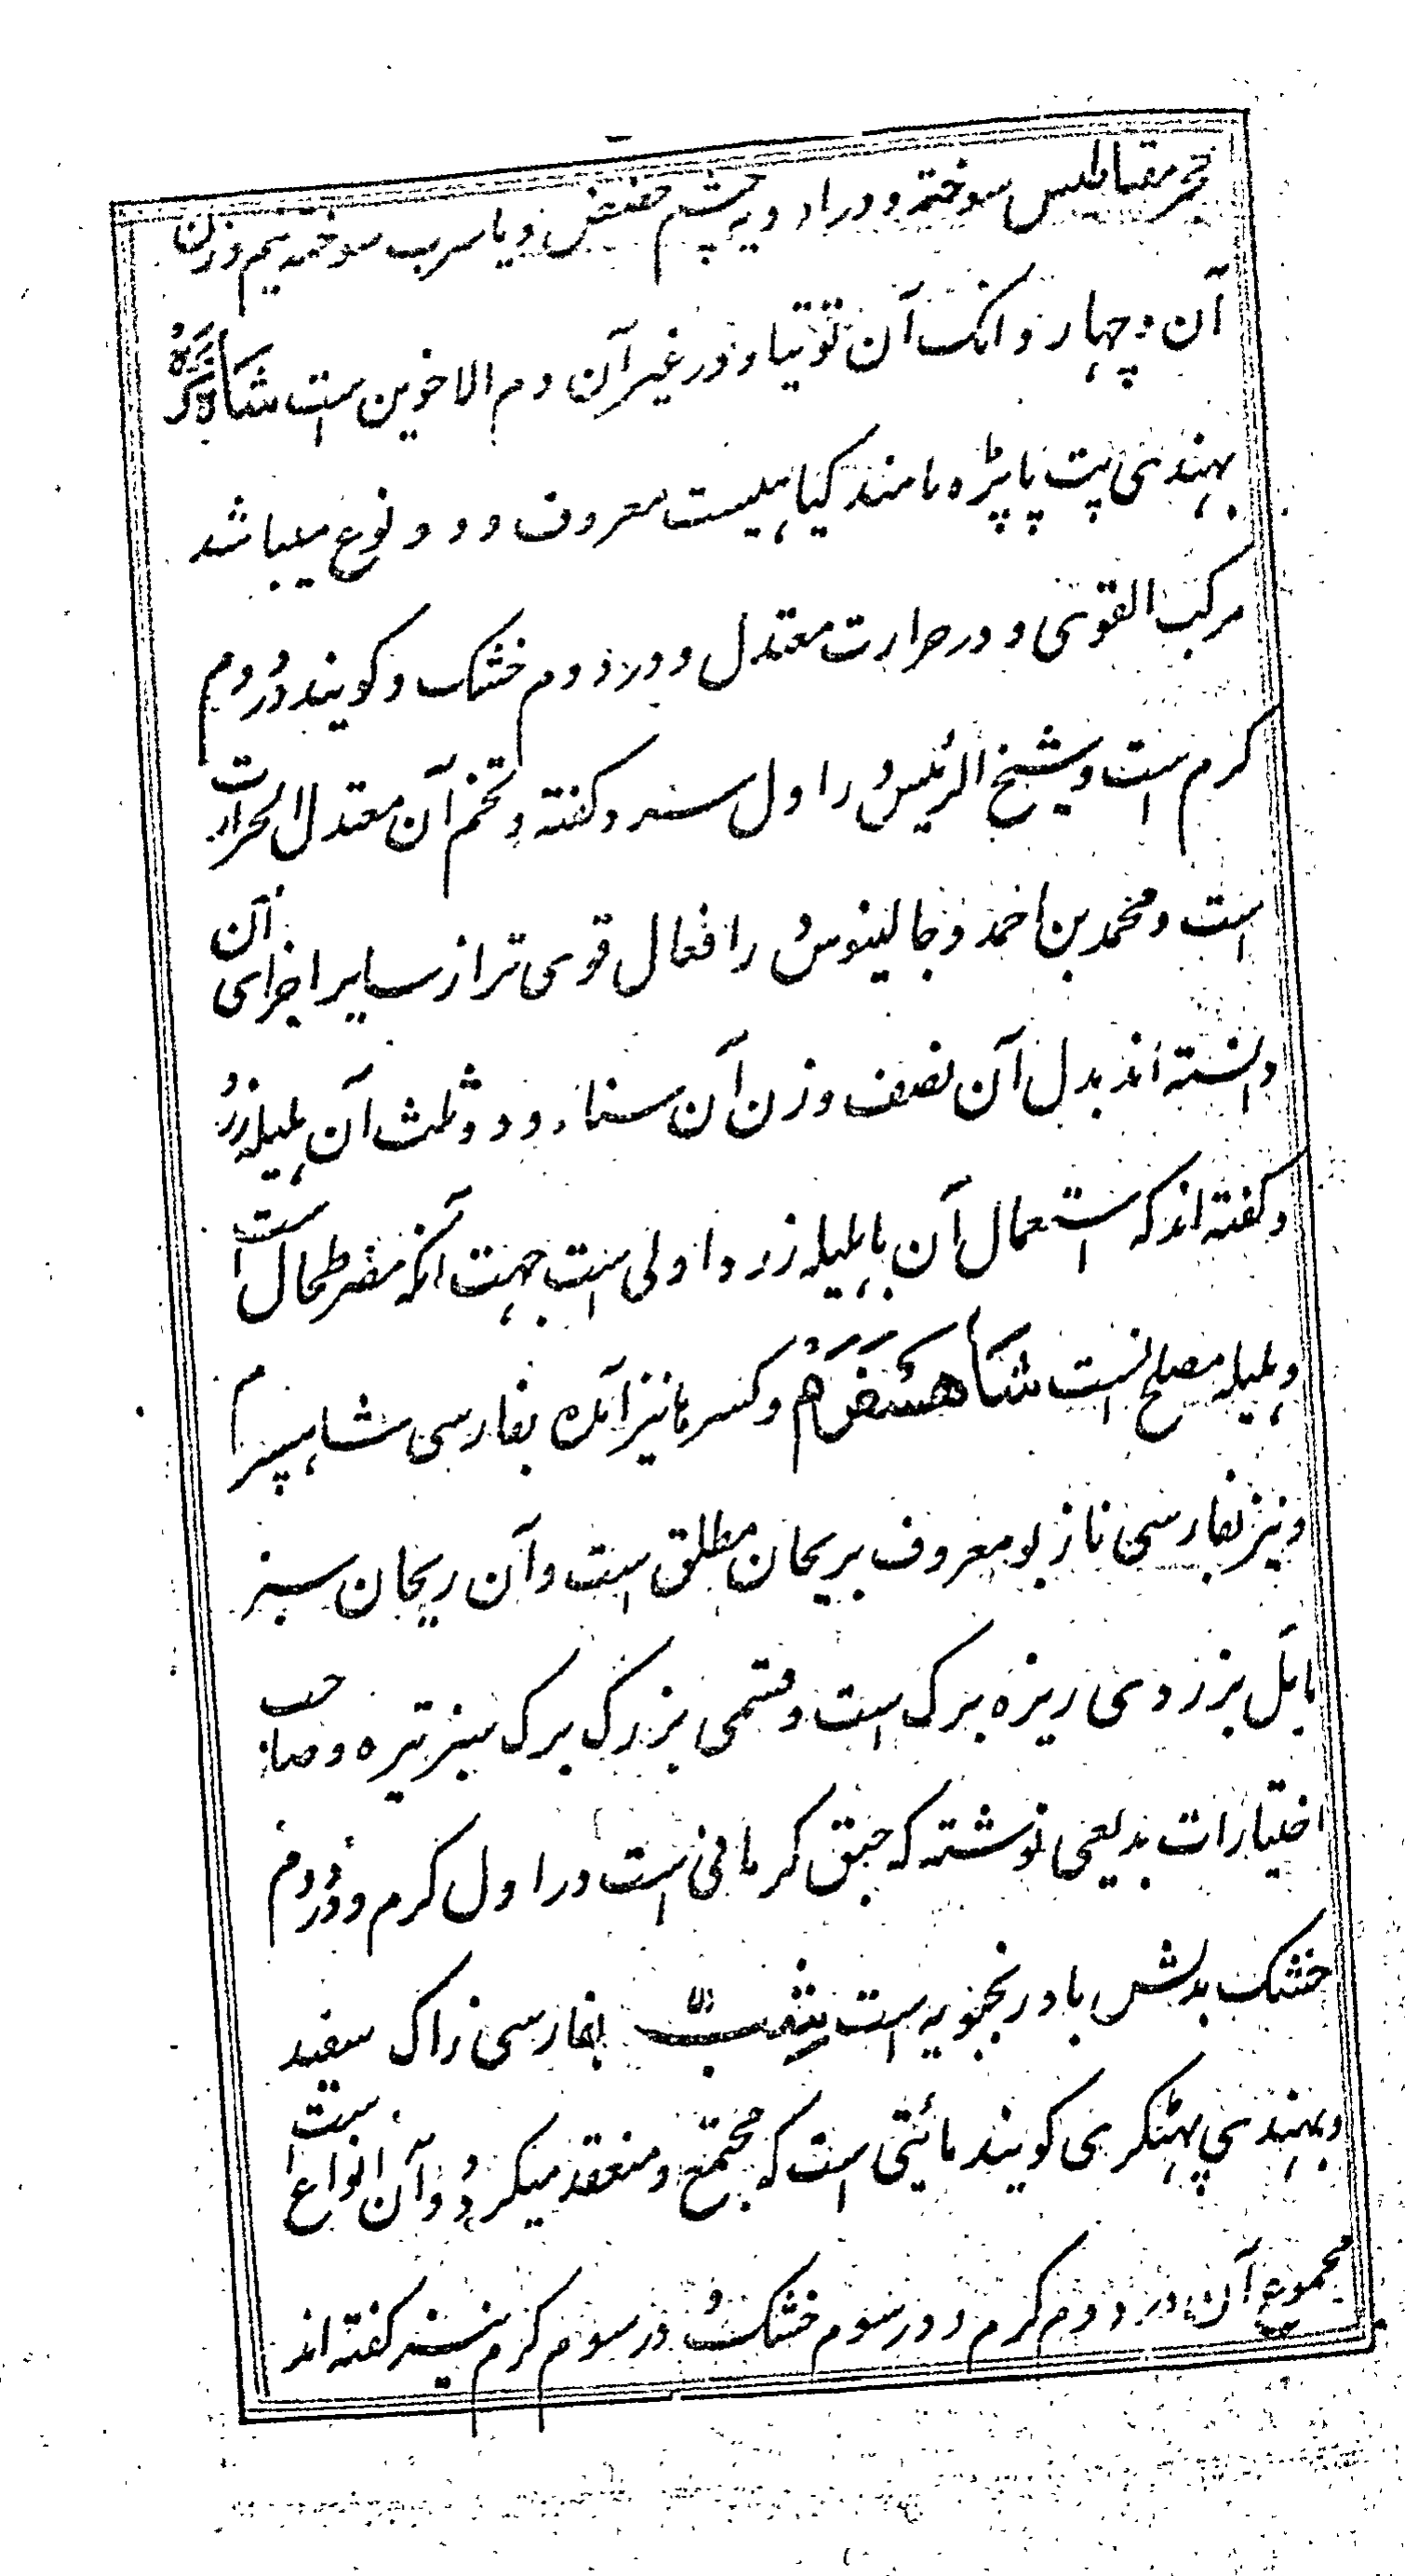 حجر مقناطیس سوخته و در ادویه چشم حضض و یا سرب سوخته نیم وزن
آن و چهار دانک آن توتیا و در غیر آن دم الاخوین است شاهتره
بهندی پت پاپڑه نامند کیاهیست معروف و دو نوع میباشد
مرکب القوی و در حرارت معتدل و در دوم خشک و کویند در دوم
کرم است و شیخ الرئیس در اول سرد کفته و تخم آن معتدل الحرارت
است و محمد بن احمد و جالینوس در افعال قوی تر از سایر اجزای آن
دانسته اند بدل آن نصف وزن آن سناء و دو ثلث آن هلیله زرد
و کفته اند که استعمال آن با هلیله زرد اولی است جهت آنکه مضر طحال است
و هلیله مصلح انست شاهسفرم و کسر ها نیز آمده بفارسی شاهسپرم
و نیز بفارسی نازبو معروف بریحان مطلق است و آن ریحان سبز
مایل بزردی ریزه برک است و قسمی بزرک برک سبز تیره و صاحب
اختیارات بدیعی نوشته که حبق کرمانی است در اول کرم و در دوم
خشک بدلش بادرنجبویه است شب بفارسی زاک سفید
و بهندی پهٹکری کویند مائیتی است که مجتمع و منعقد میکردد و آن انواع است
مجموع آن در دوم کرم و در سوم خشک و در سوم کرم نیز کفته اند